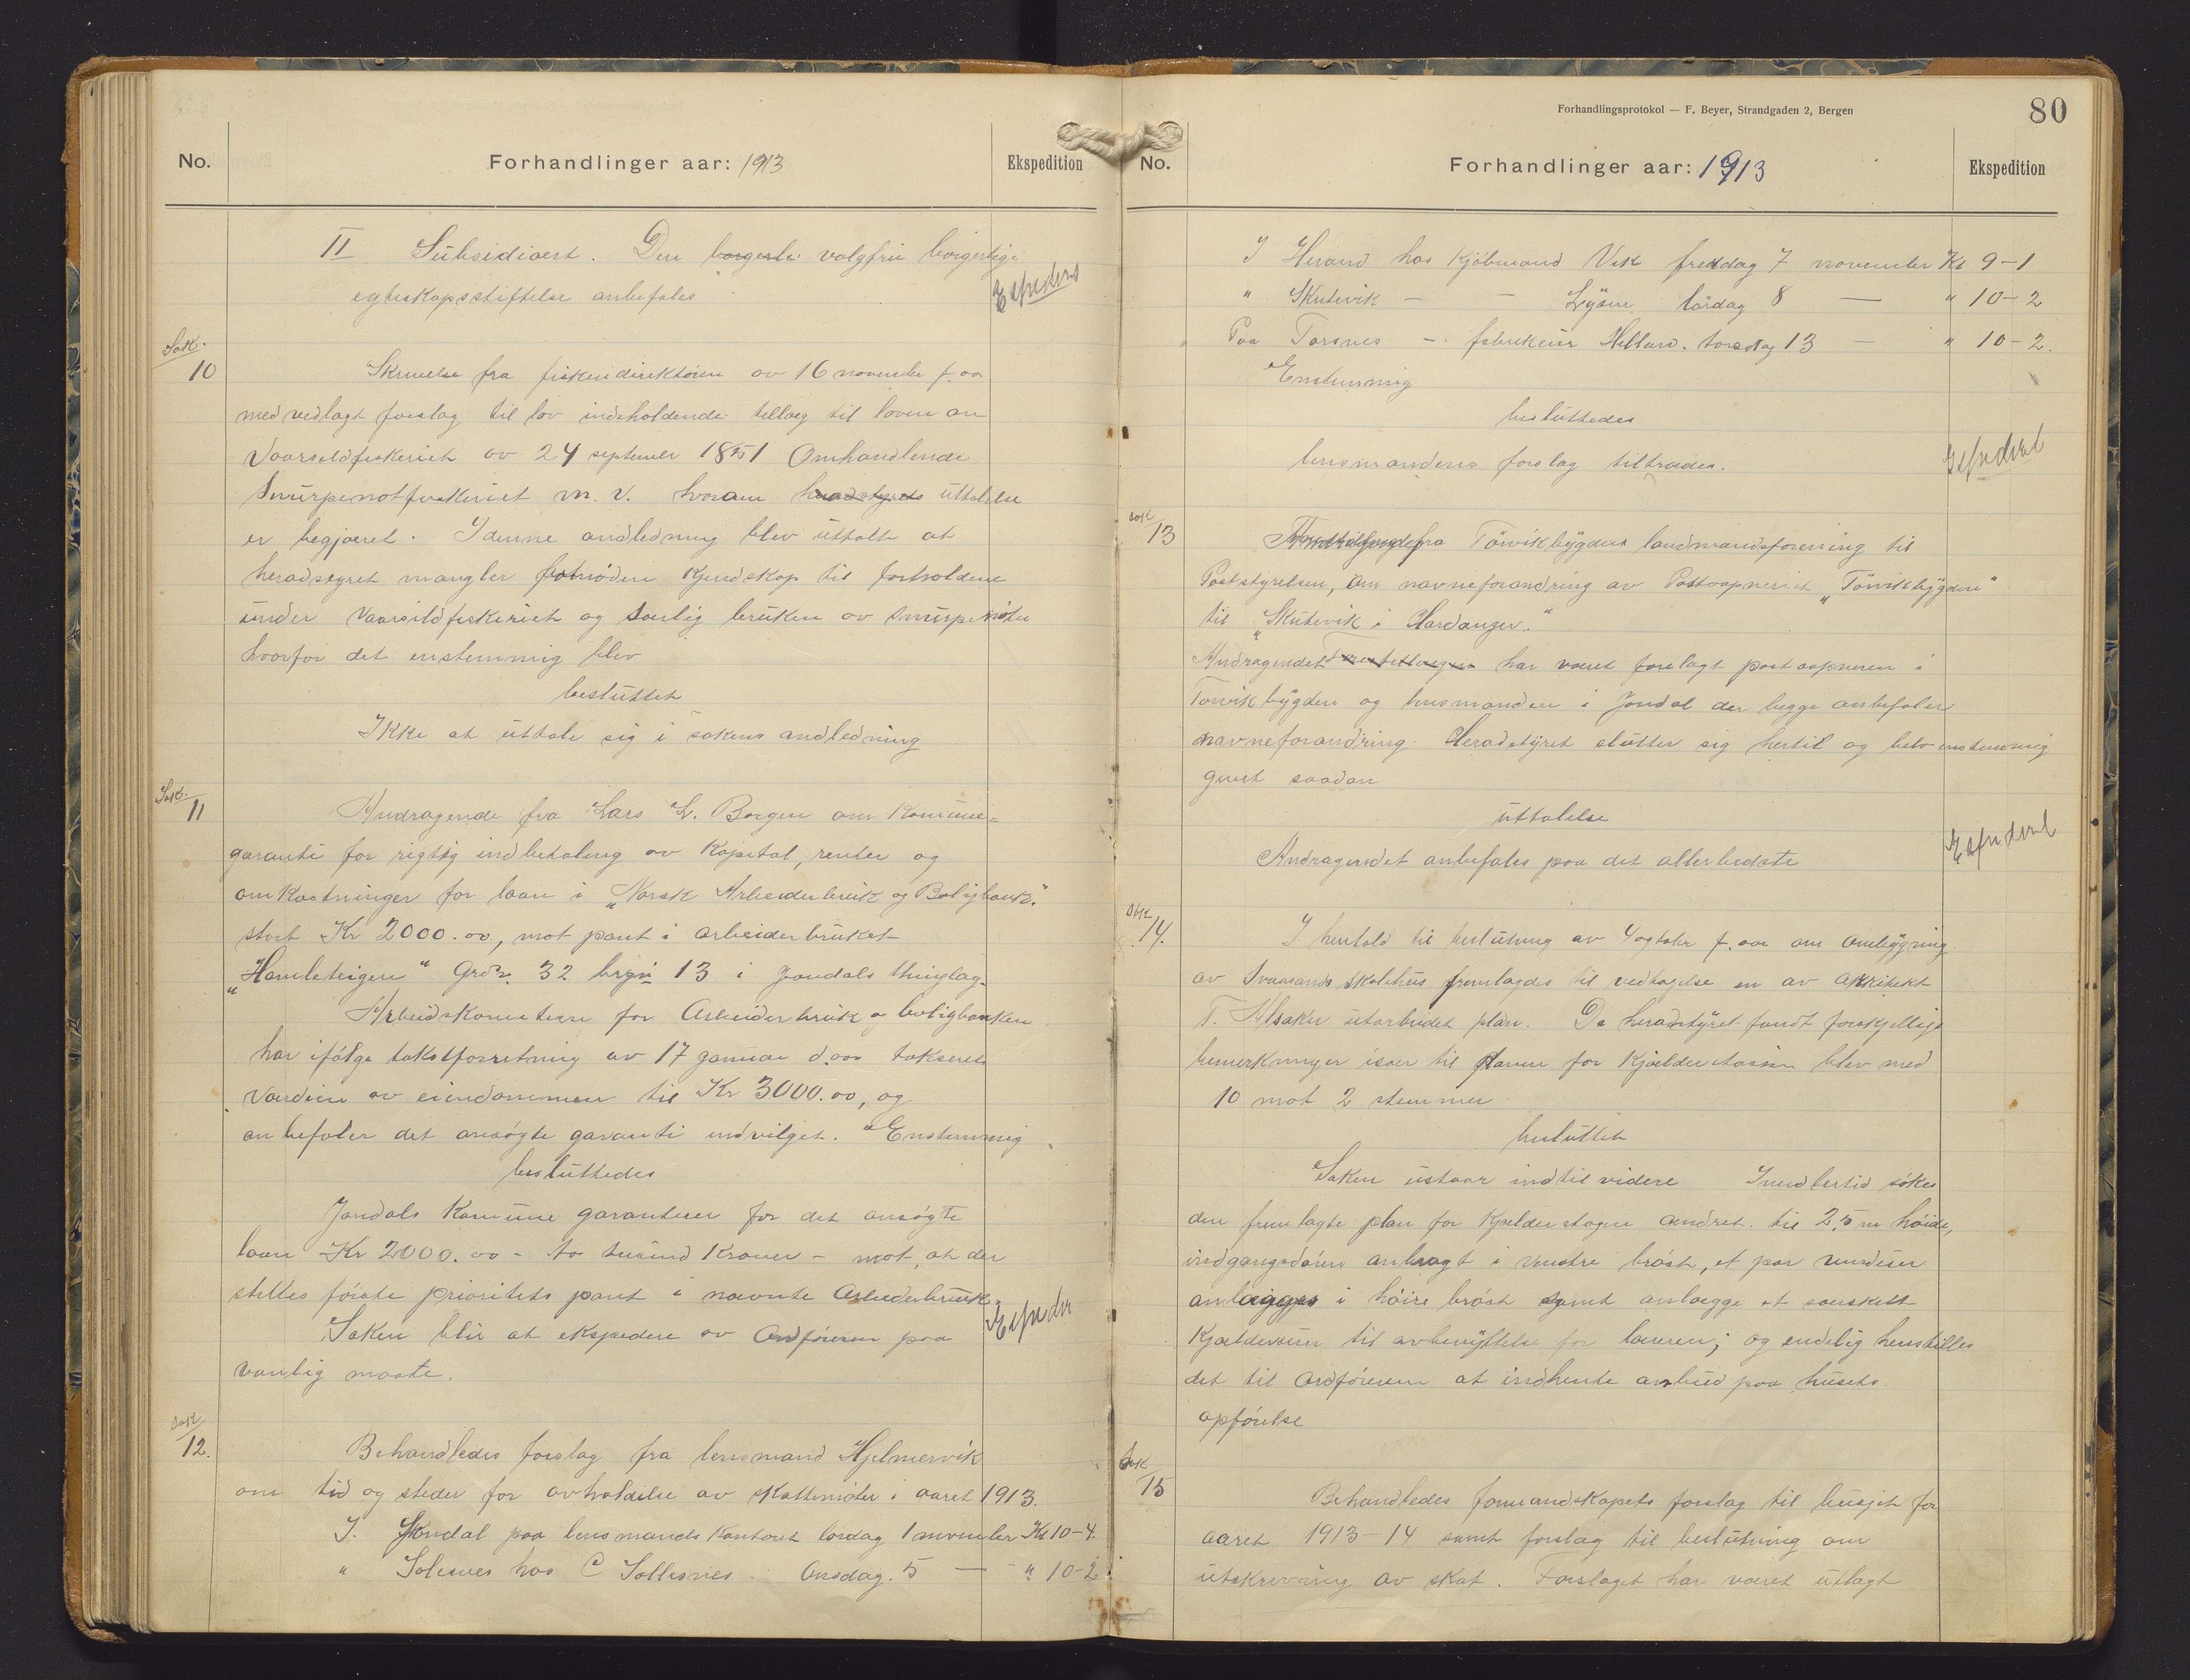 No. Forhandlinger aar: 1913 Ekspedition
II Subsidiært. Den borgerlи valgfrie borgerlige
egteskapsstiftelse anbefales
Sak.
10 Skrivelse fra fiskeridirektøren av 16 november f. aa
med vedlagt forslag til lov indeholdende tillæg til loven om
Vaarsildfiskeriet av 24 september 1851 Omhandlende
Snurpenotfiskeriet m. v. hvorom heradstyrets uttalelse
er begjæret. I denne andledning blev uttalt at
heradstyret mangler fornøden kjendskap til forholdene
under Vaarsildfiskeriet og særlig bruken av snurpenøter
hvorfor det enstemmig blev
besluttet
Ikke at uttale sig i sakens andledning
Sak.
11 Andragende fra Lars L. Borgen om Komune-
garanti for rigtig indbetaling av Kapital, renter og
omkostninger for laan i "Norsk Arbeiderbruk og Boligbank."
stort Kr 2000.00, mot pant i arbeiderbruket
"Hamleteigen" Grdn. 32 brgn 13 i Jondals thinglag.
Arbeidskomiteen for Arbeiderbruk o boligbanken
har ifølge takstforretning av 17 januar d. aar takseret
Værdien av eiendommen til Kr 3000.00, og
anbefaler det ansøgte garanti indvilget. Enstemmig
besluttedes
Jondals Komune garanterer for det ansøgte
laan Kr 2000.00 - to tusind Kroner - mot, at der
stilles første prioritets pant i nævnte Arbeiderbruk.
Saken blir at ekspedere av Ordføreren paa
vanlig maate.
Sak
12. Behandledes forslag fra lensmand Hjelmervik
om tid og steder for avholdelse av skattemøter i aaret 1913.
I. Jondal paa lensmands Kontoret lørdag 1 november Kl 10-4.
" Solesnes hos C Sollesnes. Onsdag. 5 — " 10-2.
Forhandlingsprotokol — F. Beyer, Strandgaden 2, Bergen
80
No. Forhandlinger aar: 1913 Ekspedition
I Herand hos Kjøbmand Vik fredag 7 november Kl 9-1
" Skutevik - - lørdag 8 — " 10-2
Paa Torsnes - fabrikeier torsdag 13 — " 10-2.
Enstemmig
besluttedes
lensmandens forslag tiltrædes.
Sak
13 Andragende fra Tørvikbygdens landmandsforening til
Poststyrelsen, om navneforandring av Postaapneriet "Tørvikbygden"
til "Skutevik i Hardanger."
Andragendet har været forelagt postaapneren i
Tørvikbygden og lensmanden i Jondal der begge anbefaler
navneforandring. Heradstyret slutter sig hertil og blev enstemmig
givet saadan
uttalelse
Andragendet anbefales paa det allerbedste
Sak
14. I henhold til beslutning av 4 ogtober f. aar om ombygning
av Svaasands skolehus fremlagdes til vedtagelse en av arkitekt
T. Alsaker utarbeidet plan. Da heradstyret fandt forskjellige
bemerkninger især til planen for Kjælderetasjen blev med
10 mot 2 stemmer
besluttet
Saken utstaar indtil videre Imidlertid søkes
den fremlagte plan for Kjælderetagen ændret til 2,5 m høide,
indgangsdøren anbragt i venstre brøst, et par vinduer
anlægges i høire brøst samt anlægge et særskilt
Kjælderrum til avbenyttelse for læreren; og endelig henstilles
det til Ordføreren at indhente anbud paa husets
opførelse
Sak
15 Behandledes formandskapets forslag til busjet for
aaret 1913-14 samt forslag til beslutning om
utskrivning av skat. Forslaget har været utlagt